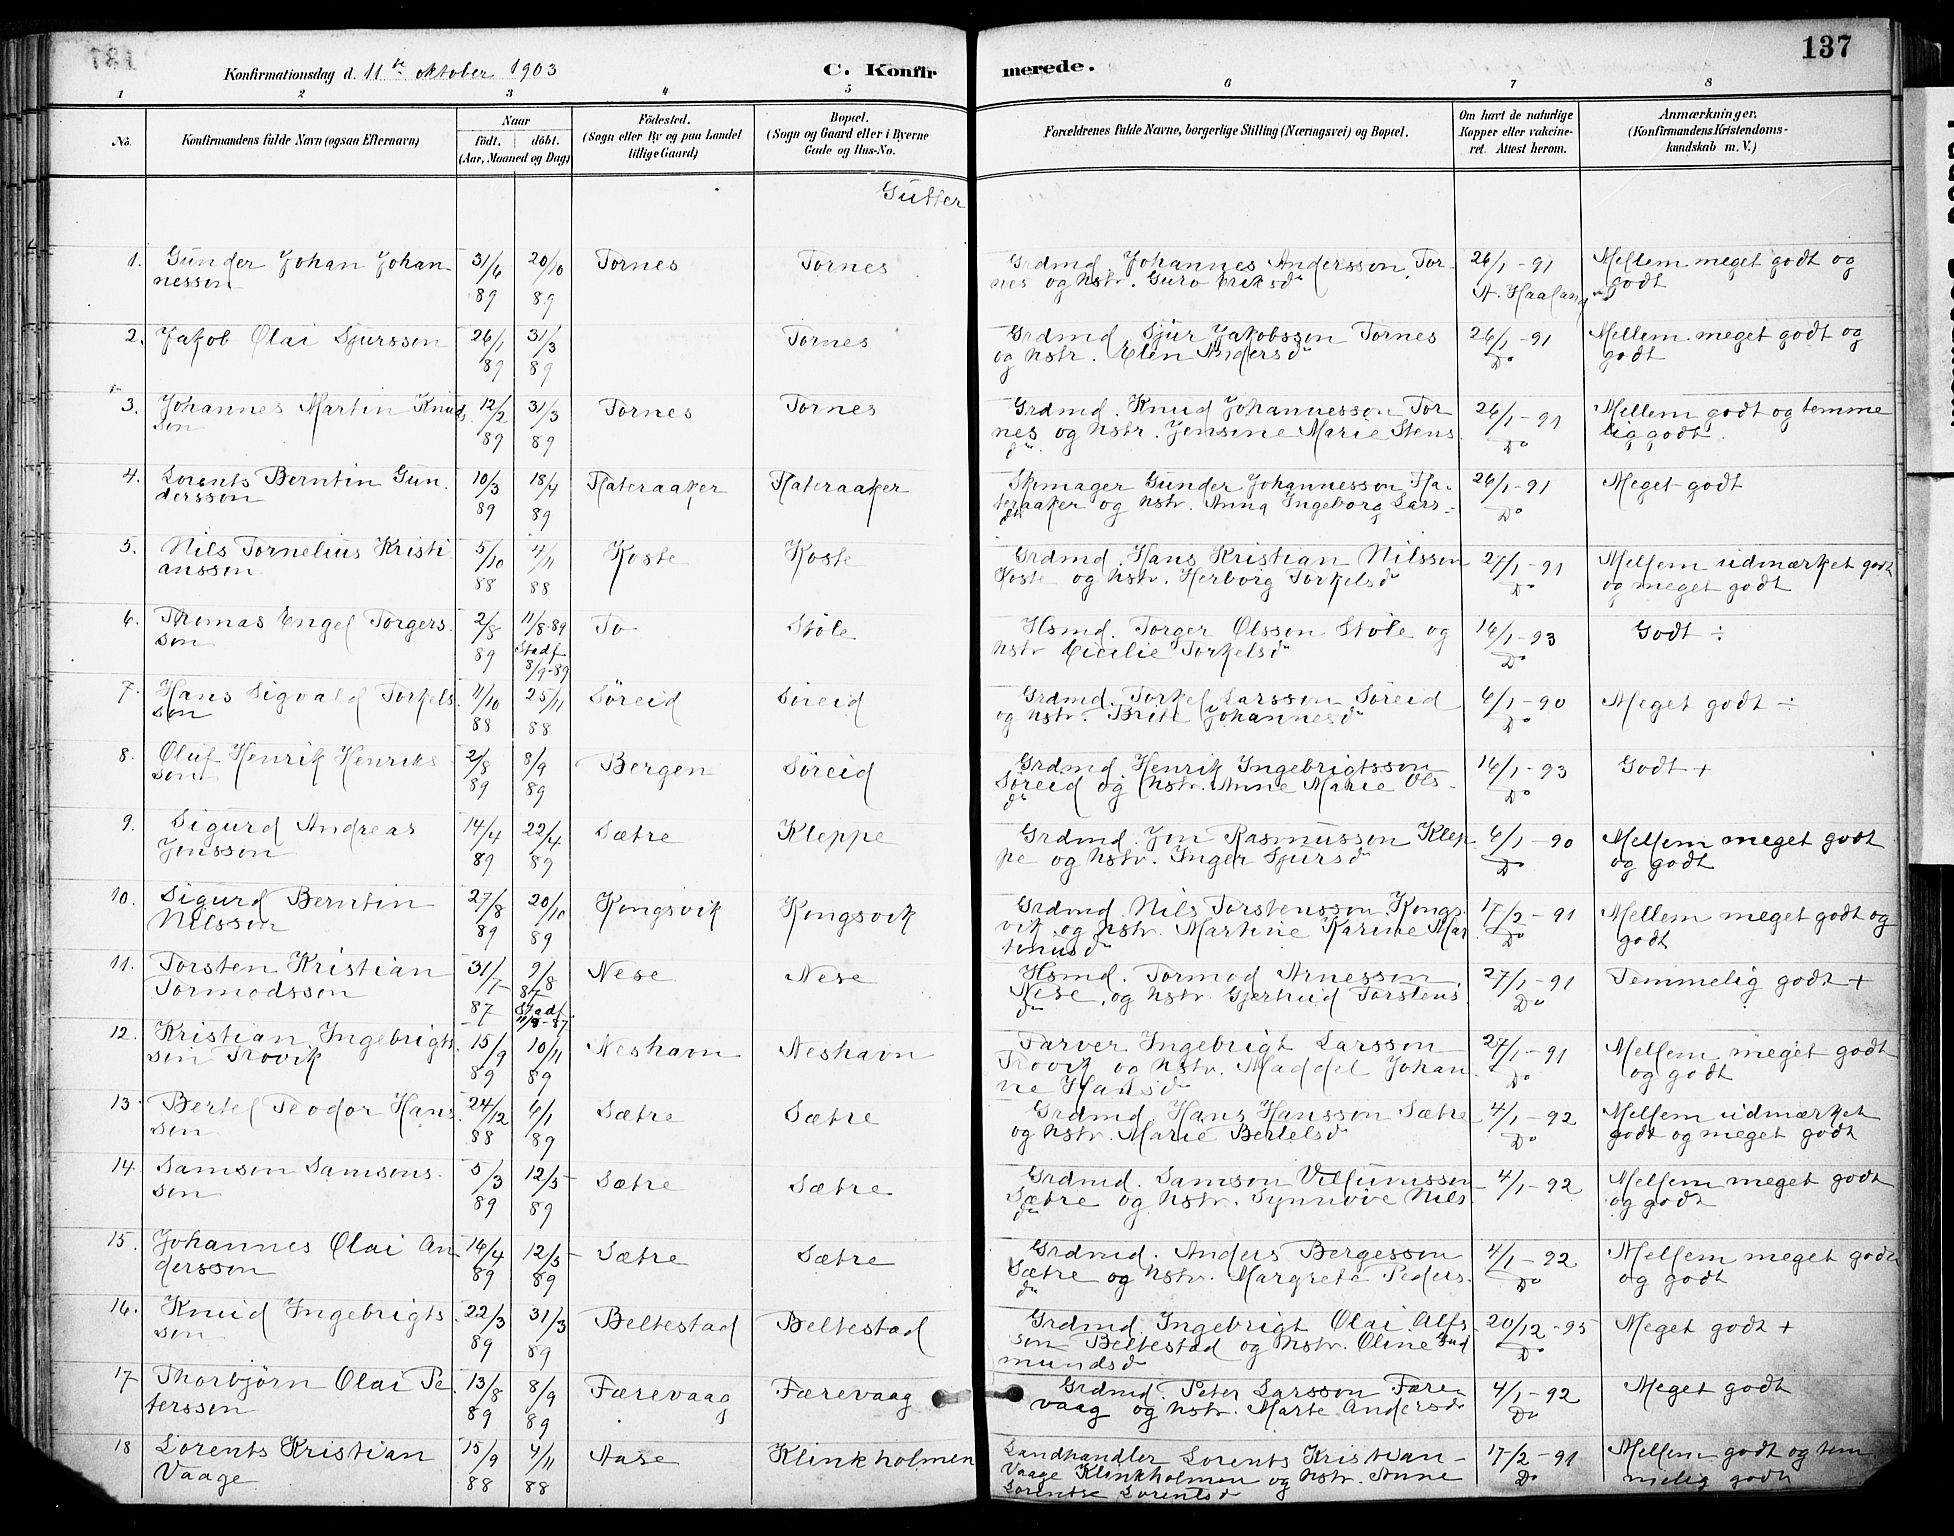 137
Konfirmationsdag d. 11te oktober 1903 C. Konfirmerede.
1 2 3 4 5 6 7 8
No. Konfirmandens fulde Navn (ogsaa Efternavn) Naar født. døbt. (Aar, Maaned og Dag) Fødested. (Sogn eller By og paa Landet tillige Gaard) Bopæl. (Sogn og Gaard eller i Byerne Gade og Hus-No. Forældrenes fulde Navne, borgerlige Stilling (Næringsvei) og Bopæl. Om havt de naturlige Kopper eller vakcineret. Attest herom. Anmærkninger. (Konfirmandens Kristendomskundskab m. V.)
Gutter
1. Gunder Johan Johan 31/6 20/10 Tornes Tornes Grdmd. Johannes Andersson, Tor- 26/1-91 Mellem meget godt og
nesson 89 89 nes og hstr. Guro Eriksdr A. Haaland godt
2. Jakob Olai Sjursson 26/1 31/3 Tornes Grdmd. Sjur Jakobsson Tornes 26/1-91 Mellem meget godt og
89 89 og hstr. Elen Andersdr Do godt
3. Johannes Martin Knuds 12/2 31/3 Tornes Tornes Grdmd. Knud Johannesson Tor 26/1-91 Mellem godt og temme
son 89 89 nes og hstr. Jensine Marie Stens Do lig godt
dr.
4. Lorents Berntin Gun 10/3 18/4 Flateraaker Flateraaker Skmager Gunder Johannesson Fla- 26/1-91 Meget godt
dersson 89 89 teraaker og hstr. Anna Ingeborg Lars- Do
dr
5. Nils Tornelius Kristi 5/10 4/11 Koste Koste Grdmd. Hans Kristian Nilsson 27/1-91 Mellem udmærket godt
ansson 88 88 Koste og hstr. Herborg Torkelsdr Do og meget godt
6. Thomas Engel Torgers 2/8 11/8-89 To Støle Hsmd. Torger Olsson Støle og 16/1-93 Godt ÷
son 89 Stadf 8/9-89 hstr Cicilie Torkelsdr Do
7. Hans Sigvald Torkels 11/10 25/11 Søreid Søreid Grdmd. Torkel Larsson Søreid 6/1-90 Meget godt ÷
son 88 88 og hstr. Brite Johannesdr Do
8. Oluf Henrik Henriks 2/8 8/9 Bergen Søreid Grdmd. Henrik Ingebrigtsson 16/1-93 Godt +
son 89 89 Søreid og hstr. Anne Marie Ols- Do
dr
9. Sigurd Andreas 14/4 22/4 Sætre Kleppe Grdmd. Jon Rasmusson Klep 6/1-90 Mellem meget godt
Jonsson 89 89 pe og hstr. Inger Sjursdr Do og godt
10. Sigurd Berntin 27/8 20/10 Kongsvik Kongsvik Grdmd. Nils Torstensson Kongs 17/2-91 Mellem meget godt og
Nilsson 89 89 vik og hstr. Martine Karine Mar Do godt
tinusdr
11. Torsten Kristian 31/7 9/8 87 Nese Nese Hsmd. Tormod Arnesson 27/1-91 Temmelig godt +
Tormodsson 87 Stadf. Nese, og hstr. Gjertrud Torstens Do
dr
12. Kristian Ingebrigts 15/9 10/11 Neshavn Neshavn Farver Ingebrigt Larsson 27/1-91 Mellem meget godt
son Trovik 89 89 Trovik og hstr. Maddel Johan Do og godt
ne Hansdr
13. Bertel Teodor Hans 24/12 6/1 Sætre Sætre Grdmd. Hans Hansson Sætre 4/1-92 Mellem udmærket
son 88 89 og hstr. Marie Bertelsdr Do godt og meget godt
14. Samson Samsons 5/3 12/5 Sætre Sætre Grdmd. Samson Villumsson 4/1-92 Mellem meget godt
son 89 89 Sætre og hstr. Synnøve Nils og godt
dr
15. Johannes Olai An 16/4 12/5 Sætre Sætre Grdmd. Anders Bergesson 4/1-92 Mellem meget godt
dersson 89 89 Sætre og hstr. Margrete Peders Do og godt
dr
16. Knud Ingebrigts 22/3 31/3 Beltestad Beltestad Grdmd Ingebrigt Olai Alfs 20/12-95 Meget godt +
son 89 89 son Beltestad og hstr. Oline Gud Do
mundsdr
17 Thorbjørn Olai Pe 13/8 8/9 Færevaag Færevaag Grdmd. Peter Larsson Fære 4/1-92 Meget godt
tersson 89 89 vaag og hstr. Marte Andersdr Do
18 Lorents Kristian 15/9 4/11 Aase Klinkholmen Landhandler Lorents Kristian 17/2-91 Mellem godt og tem
Vaage 88 88 Vaage Klinkholmen og hstr. Anne Do melig godt
Lorentse Lorentsdr